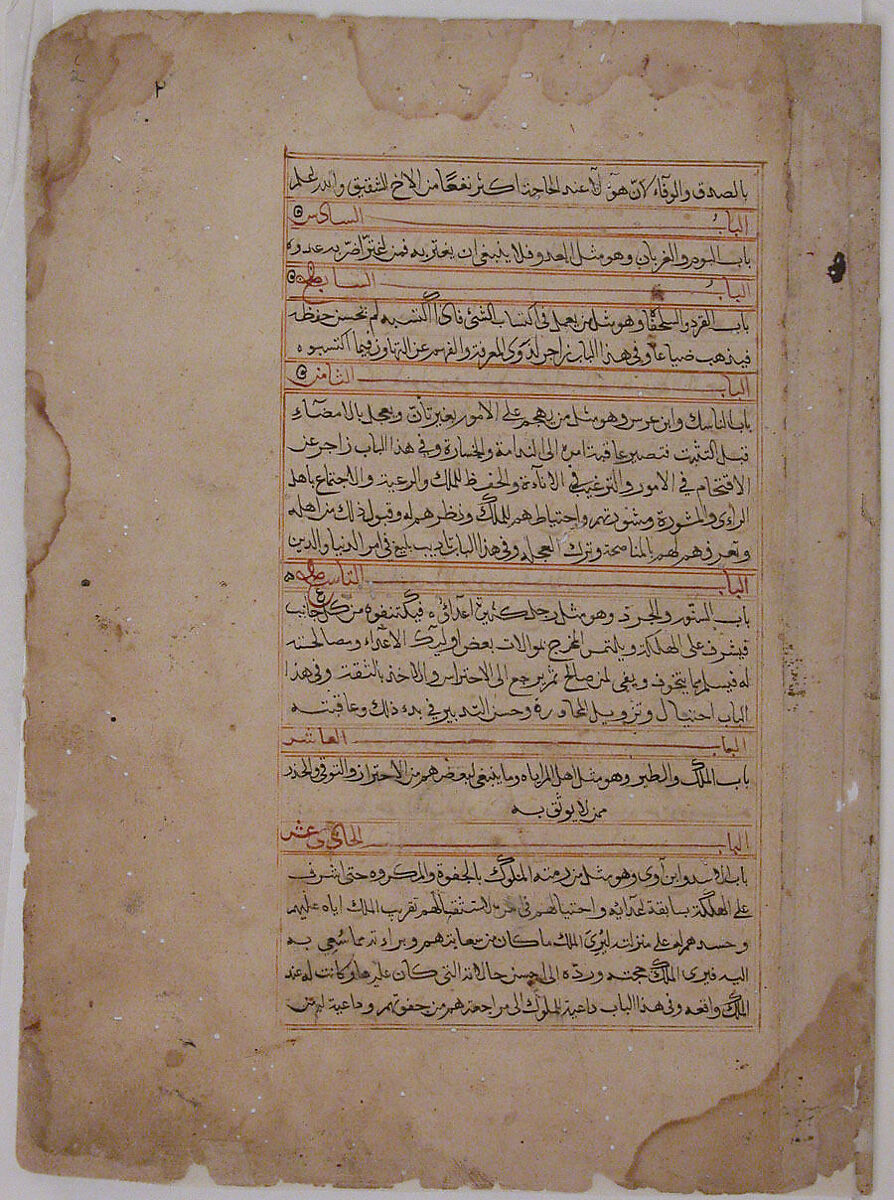 ٢
بالصدق والوفاء لانّ هؤلآ عند الحاجة اكثر نفعًا من الاخ الشقيق والله اعلم
الباب السادس
باب البوم والغربان وهو مثل العدو فلا ينبغى ان يغتر به فمن اغترّ اضرّ به عدوه
الباب السابع
باب القرد والسلحفاة وهو مثل من يعمل فى اكتساب الشئ فاذا اكتسبه لم يحسن حفظه
فيذهب ضياعا وفى هذا الباب زاجر لذوى المعرفة والفهم عن التهاون فيما اكتسبوه
الباب الثامن
باب الناسك وابن عرس وهو مثل من يهجم على الامور بغير تأنّ ويعجل بالامضآء
قبل التثبت فتصير عاقبة امره الى الندامة والخسارة وفى هذا الباب زاجر عن
الاقتحام فى الامور والترغيب فى الاناءة والحفظ للملك والرعية والاجتماع باهل
الراءى والمشورة ومشورتهم واحتياطهم للملك ونظرهم له وقبول ذلك من اهله
وتعرفهم لهم بالمناصحة وترك العجلة وفى هذا الباب تاديب بليغ فى امر الدنيا والدين
الباب التاسع
باب السنّور والجرذ وهو مثل رجل كثيرة اعدائهُ فيكتنفوه من كل جانب
فيشرف على الهلكة ويلتمس المخرج بموالات بعض اوليك الاعداء ومصالحته
له فيسلم مما يتخوف ويفى لمن صالح ثم يرجع الى الاحتراس والاخذ بالثقة وفى هذا
الباب احتيال وتزويل للمحاورة وحسن التدبير فى بدء ذلك وعاقبته
الباب العاشر
باب الملك والطير وهو مثل اهل المراياه وما ينبغى لبعضهم من الاحتراز والتوقى والحذر
ممن لا يوثق به
الباب الحادى عشر
باب الاسد وابن آوى وهو مثل من رمته الملوك بالجفوة والمكروه حتى اشرف
على الهلكة بسابقة اعدايه واحتيالهم فى امره لاستثقالهم تقريب الملك اياه عليهم
وحسدهم له على منزلته ليرى الملك ما كان من سعايتهم وبراءته مما سُعِى به
اليه فيرى الملك حجته وردّه الى احسن حالاته التى كان عليها وكانت له عند
الملك واقعه وفى هذا الباب داعية الملوك الى مراجعة هم من جفوتهم وداعية لهم من